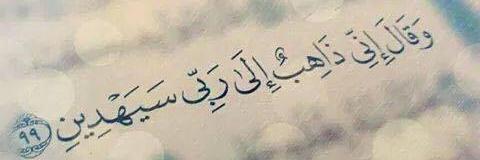 وَقَالَ إِنِّي ذَاهِبٌ إِلَىٰ رَبِّي سَيَهْدِينِ ٩٩